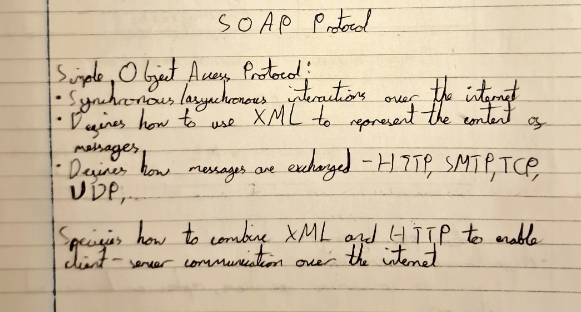 SOAP Protocol
Simple Object Access Protocol:
• Synchronous/asynchronous interactions over the internet
• Defines how to use XML to represent the content of
messages
• Defines how messages are exchanged - HTTP, SMTP, TCP,
UDP,...
Specifies how to combine XML and HTTP to enable
client-server communication over the internet